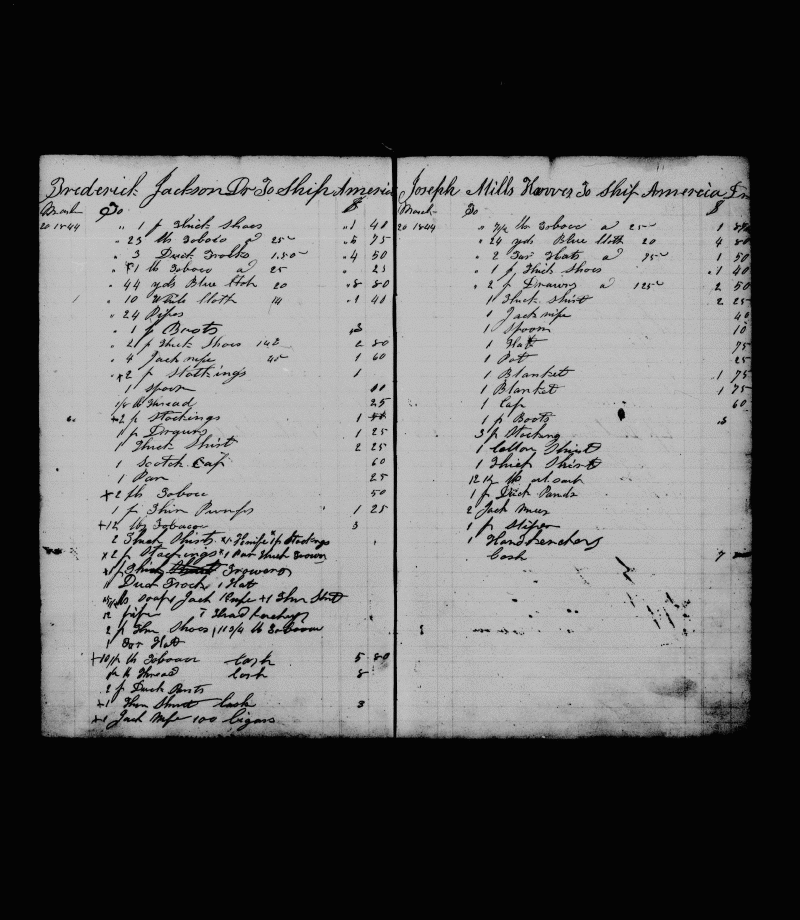 Brederick Jackson Dr To Ship America
March To $
20 1844 " 1 p Thick Shoes " 1 40
" 23 lb Toboco a 25 " 5 75
" 3 Duck Frocks 1.50 " 4 50
" 1 lb Toboco a 25 " 25
" 44 yds Blue Cloth 20 " 8 80
" 10 White Cloth 14 " 1 40
" 24 Pipes
" 1 p Boots " 3
" 2 p Thick Shoes 142 2 80
" 4 Jack nife 40 1 60
" x 2 p Stockings 1
1 Spoon 10
1/4 lb Thread 25
+2 p Stockings 1
1 p Draurs 1 25
1 Thick Shirt 2 25
1 Scotch Cap 60
1 Pan 25
x 2 lb Toboco 50
1 p Thin Pumps 1 25
+12 lbs Tobacco 3
2 Thick Shirts x1 Knife 1 p Stockings
x 2 p Stockings x 1 Par Thick Trowers
1 p Thick Trowers
1 Duck Frock 1 Hat
lb soap 1 Jack Knife +1 Thin Shirt
12 pipes 1 Head hanchaf
2 p Thin Shoes 11 3/4 lb Tobacco
1 Hat
+10 lb Tobacco Cash 5 80
lb Thread Cash 8
2 p Duck Pants
+1 Thin Shirt Cash 3
+1 Jack Nife 100 Cigars
Joseph Mills Havres To Ship Amereica
March To $
20 1844 " 7 1/2 lb Toboco a 25 1
" 24 yds Blue Cloth 20 4 80
" 2 Tar Hats a 75 1 50
" 1 p Thick Shoes " 1 40
" 2 p Drawrs a 125 2 50
1 Thick Shirt 2 25
1 Jack nife 40
1 Spoon 10
1 Hatt 75
1 Pot 25
1 Blanket 1 75
1 Blanket 1 75
1 Cap 60
1 p Boots " 3
3 p Stocking
1 Cotton Shirt
1 Thick Shirt
12 1/2 lb
1 p Duck Pands
2 Jack Nives
1 p Sliper
1 Handkerchers
Cash 7